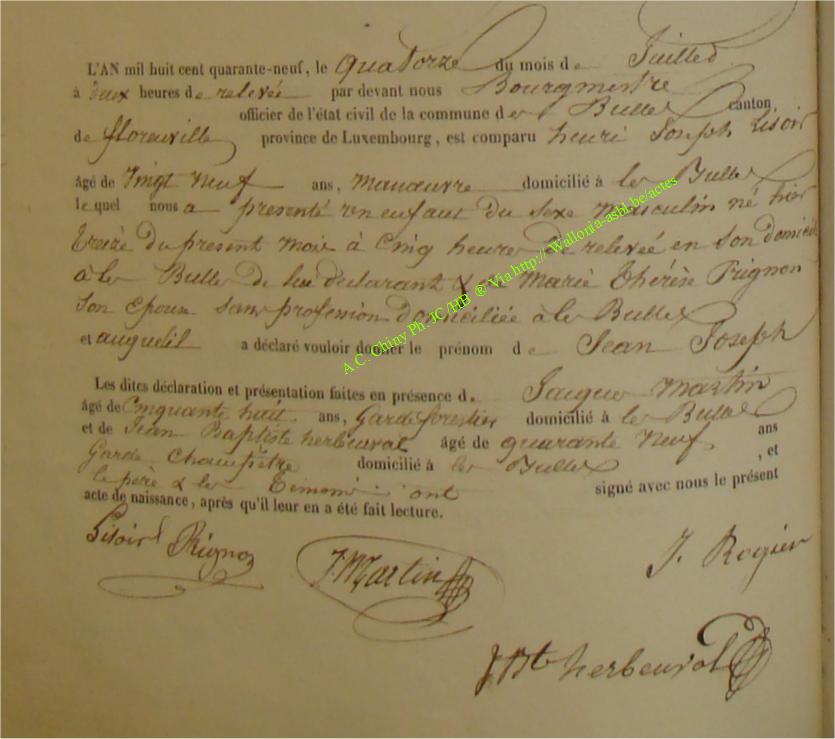 L'AN mil huit cent quarante-neuf, le quatorze du mois de Juillet
à deux heures de relevée par devant nous Bourgmestre
officier de l'état civil de la commune des Bulles canton
de florenville province de Luxembourg, est comparu henri Joseph Lisoir
âgé de Vingt neuf ans, manœuvre domicilié à les Bulles
le quel nous a présenté un enfant du sexe masculin né hier
treize du présent mois à Cinq heures de relevée en son domicil
à les Bulles de lui déclarant & de Marie Thérèse Pignon
son épouse sans profession domiciliée à les Bulles
et auquel il a déclaré vouloir donner le prénom de Jean Joseph
Les dites déclaration et présentation faites en présence de Jacques Martin
âgé de Cinquante huit ans, Garde forestier domicilié à les Bulles
et de Jean Baptiste herbeuval âgé de quarante neuf ans
Garde Champêtre domicilié à les Bulles , et
le père & les témoins ont signé avec nous le présent
acte de naissance, après qu'il leur en a été fait lecture.
Lisoir Pignon
J. Martin
J. Rogier
J Bte herbeuval
A.C. Chiny Ph. JC /HB ® Via http://Wallonia-asbl.be/actes